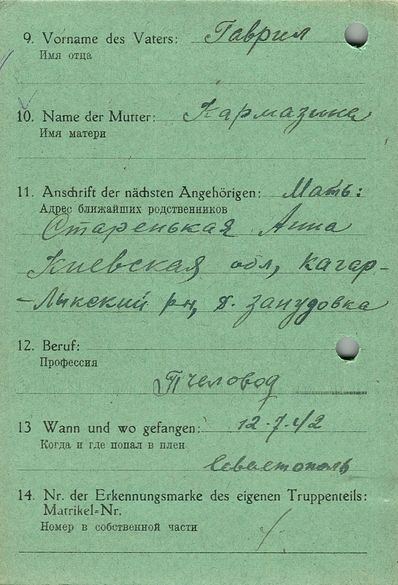 9. Vorname des Vaters: Гаврил
Имя отца
10. Name der Mutter: Кармазина
Имя матери
11. Anschrift der nächsten Angehörigen: Мать:
Адрес ближайших родственников
Старенькая Анна
Киевская обл, Кагар-
-лыкский рн, д. Занудовка
12. Beruf:
Профессия
Пчеловод
13 Wann und wo gefangen: 12.7.42
Когда и где попал в плен
Севастополь
14. Nr. der Erkennungsmarke des eigenen Truppenteils:
Matrikel-Nr.
Номер в собственной части